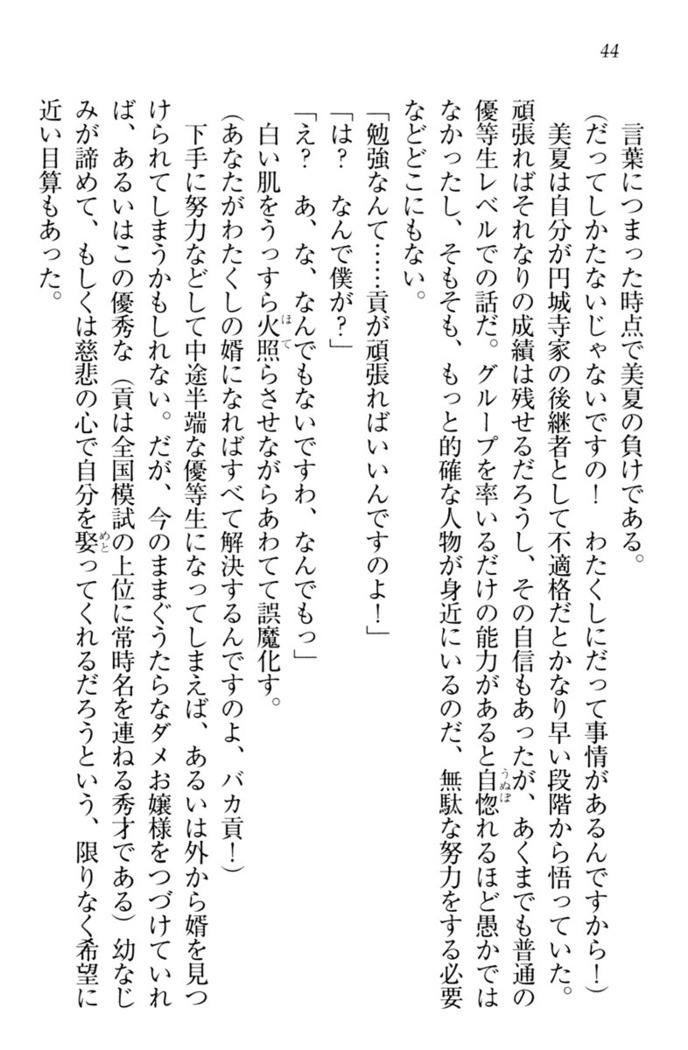 44
言葉につまった時点で美夏の負けである。
(だってしかたないじゃないですの！　わたくしにだって事情があるんですから！)
美夏は自分が円城寺家の後継者として不適格だとかなり早い段階から悟っていた。
頑張ればそれなりの成績は残せるだろうし、その自信もあったが、あくまでも普通の
優等生レベルでの話だ。グループを率いるだけの能力があると自惚れるほど愚かでは
なかったし、そもそも、もっと的確な人物が身近にいるのだ、無駄な努力をする必要
などどこにもない。
「勉強なんて……貢が頑張ればいいんですのよ！」
「は？　なんで僕が？」
「え？　あ、な、なんでもないですわ、なんでもっ」
白い肌をうっすら火照らさせながらあわてて誤魔化す。
(あなたがわたくしの婿になればすべて解決するんですのよ、バカ貢！)
下手に努力などして中途半端な優等生になってしまえば、あるいは外から婿を見つ
けられてしまうかもしれない。だが、今のままぐうたらなダメお嬢様をつづけていれ
ば、あるいはこの優秀な（貢は全国模試の上位に常時名を連ねる秀才である）幼なじ
みが諦めて、もしくは慈悲の心で自分を娶ってくれるだろうという、限りなく希望に
近い目算もあった。